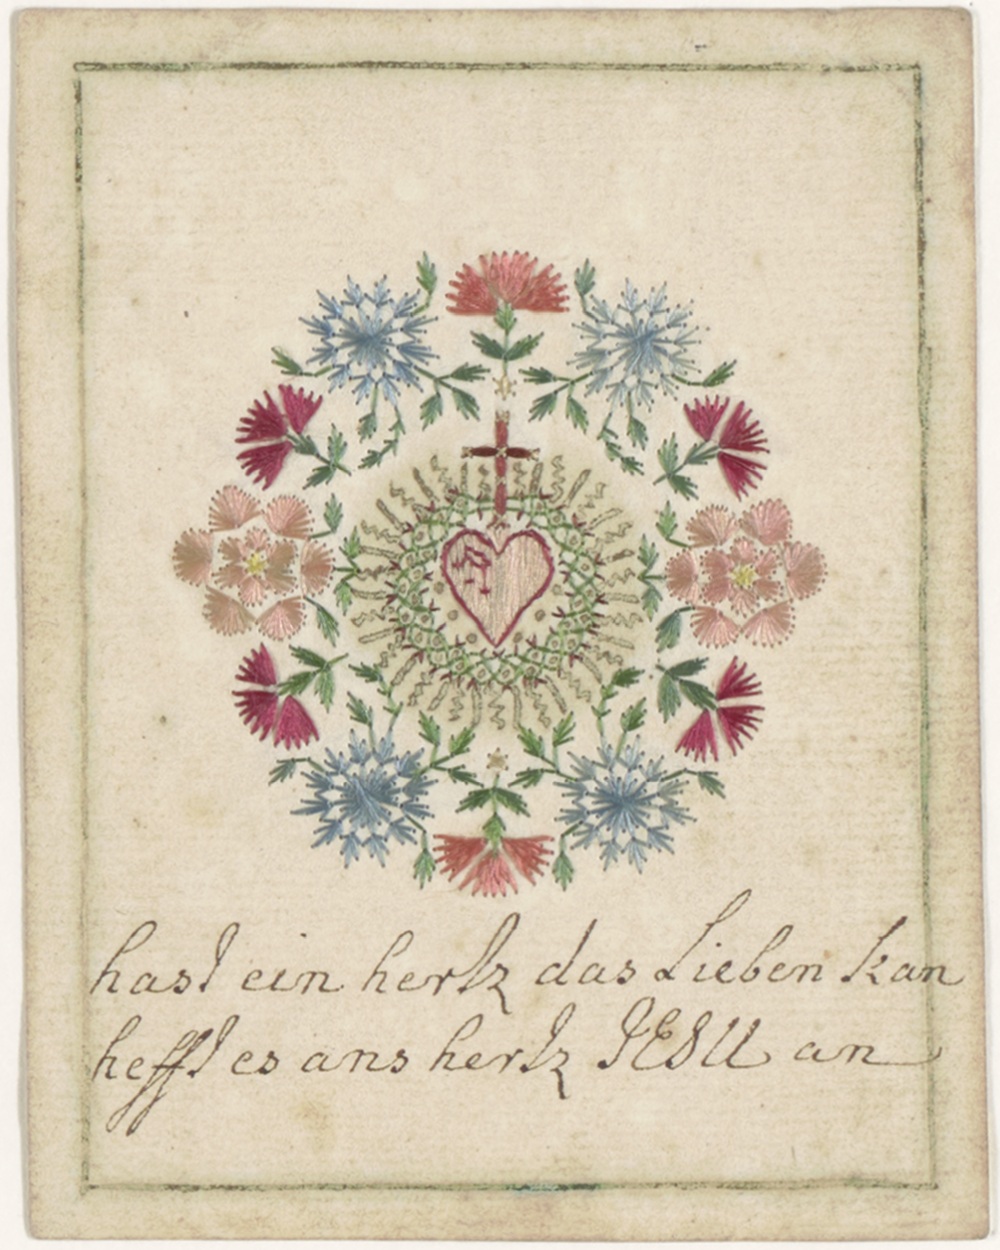 hast ein hertz das Lieben kan
hefft es ans hertz JESU an